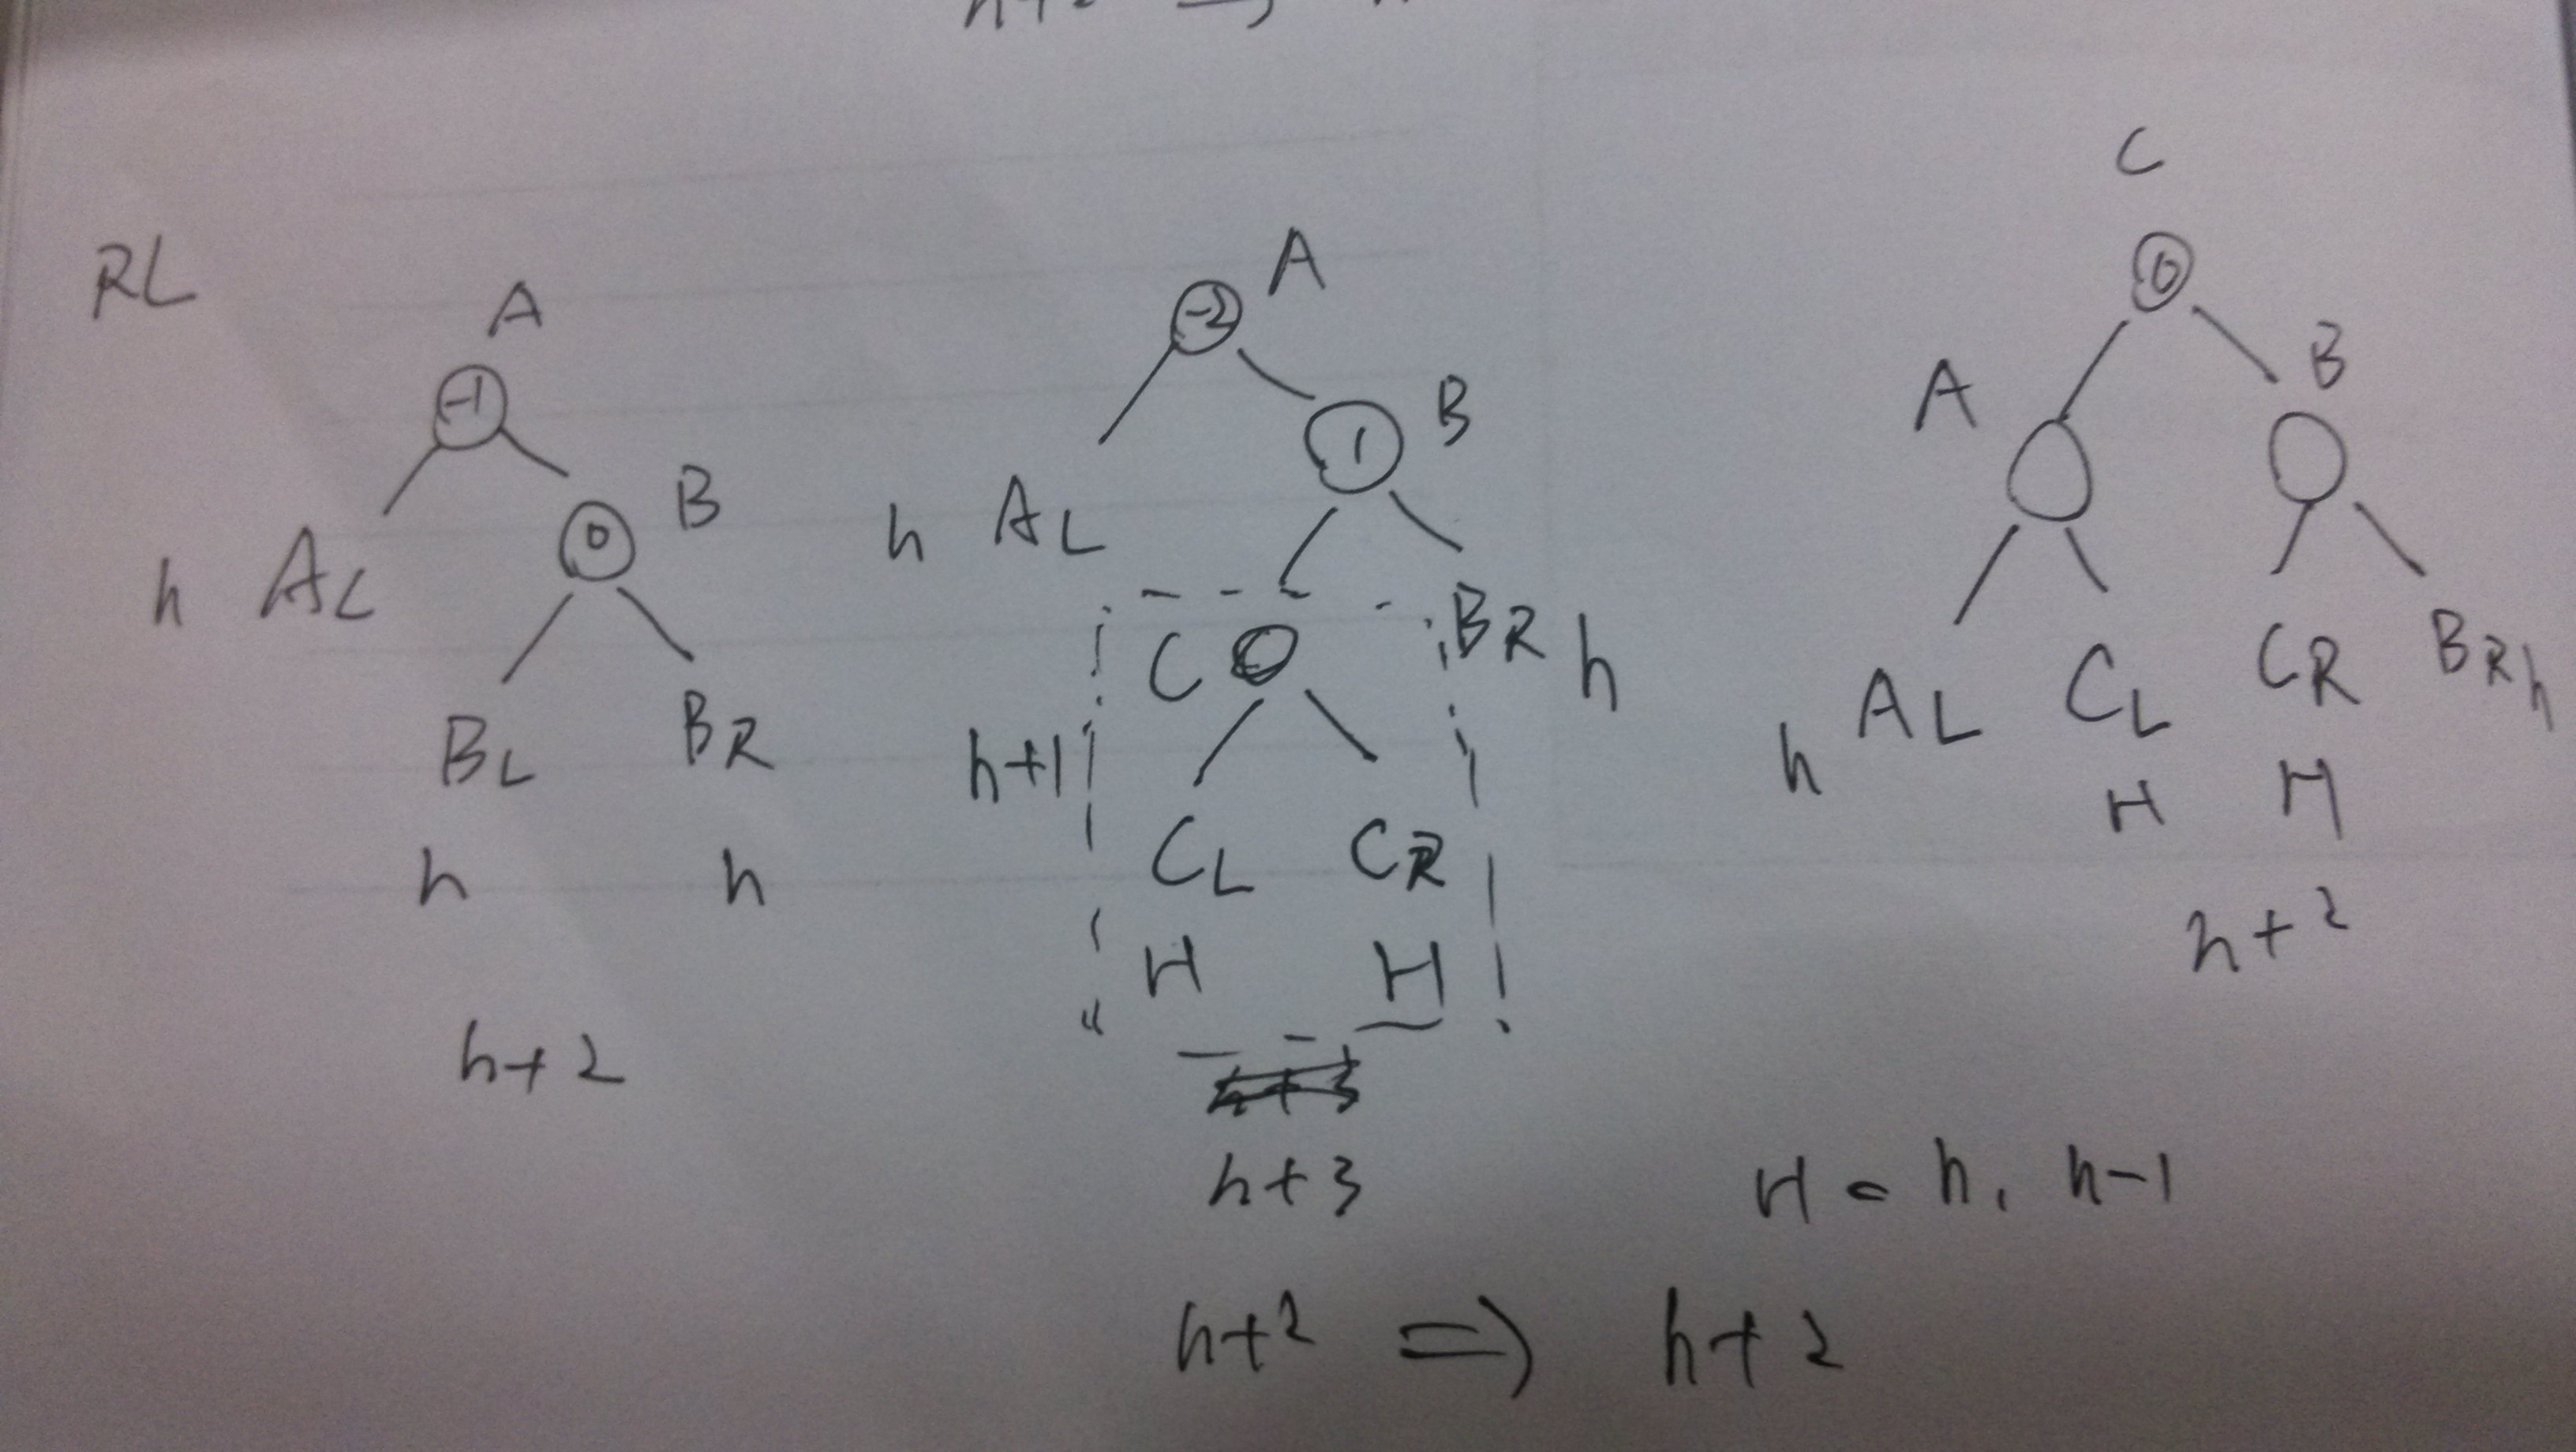 h+2 =>
RL
A
-1
B
0
h AL
BL BR
h h
h+2
A
-2
B
1
h AL
BR h
C
h+1
CL CR
H H
h+3
h+3
C
0
A B
h AL CL CR BR h
H H
h+2
H = h, h-1
h+2 => h+2